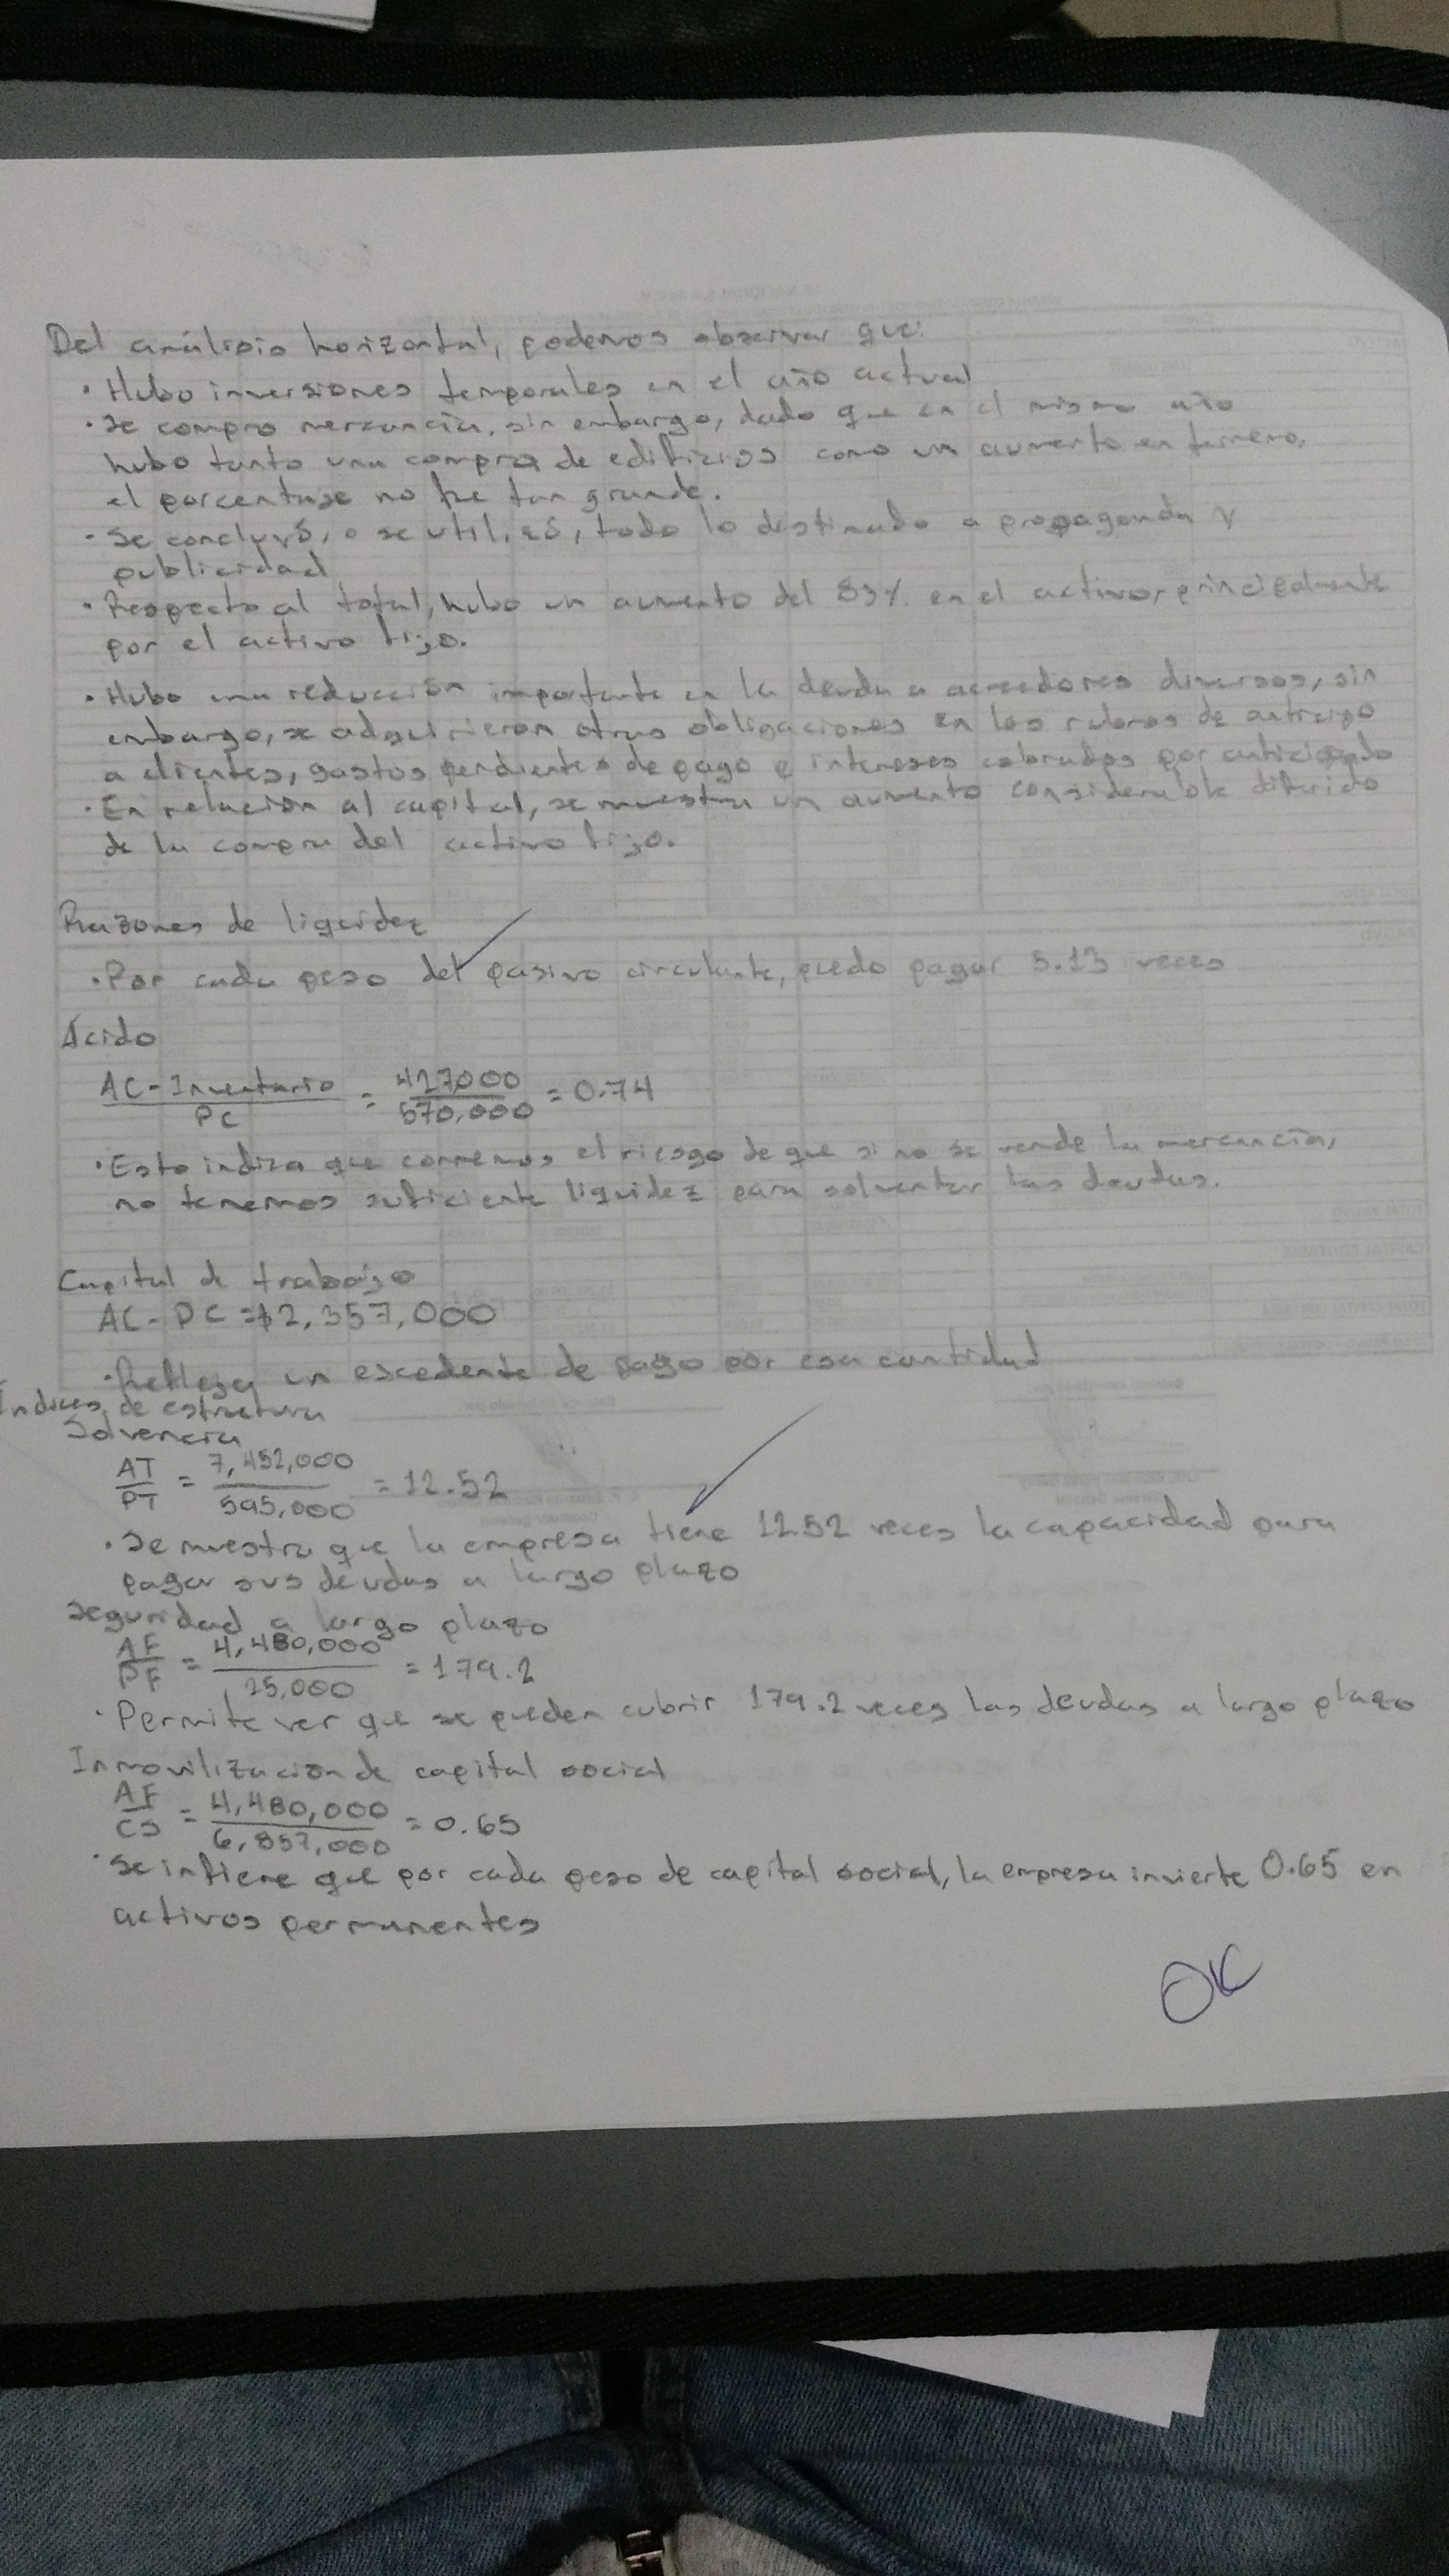 Del análisis horizontal, podemos observar que:
• Hubo inversiones temporales en el año actual
• Se compro mercancía, sin embargo, dado que en el mismo año
hubo tanto una compra de edificios como un aumento en terreno,
el porcentaje no fue tan grande.
• Se concluyó, o se utilizó, todo lo destinado a propaganda y
publicidad
• Respecto al total, hubo un aumento del 83% en el activo, principalmente
por el activo fijo.
• Hubo una reducción importante en la deuda a acreedores diversos, sin
embargo, se adquirieron otras obligaciones en los rubros de anticipo
a clientes, gastos pendientes de pago e intereses cobrados por anticipado
• En relación al capital, se muestra un aumento considerable
de la compra del activo fijo.
Razones de liquidez
• Por cada peso del pasivo circulante, puedo pagar 5.13 veces
Ácido
AC - Inventario / PC = 427000 / 570,000 = 0.74
• Esto indiza que corremos el riesgo de que si no se vende la mercancía,
no tenemos suficiente liquidez para solventar las deudas.
Capital de trabajo
AC - PC = $2,357,000
• Refleja un escedente de pago por esa cantidad
Índices de estructura
Solvencia
AT / PT = 7,452,000 / 595,000 = 12.52
• Se muestra que la empresa tiene 12.52 veces la capacidad para
pagar sus deudas a largo plazo
Seguridad a largo plazo
AF / PF = 4,480,000 / 25,000 = 179.2
• Permite ver que se pueden cubrir 179.2 veces las deudas a largo plazo
Inmovilización de capital social
AF / CS = 4,480,000 / 6,857,000 = 0.65
• Se infiere que por cada peso de capital social, la empresa invierte 0.65 en
activos permanentes
OK